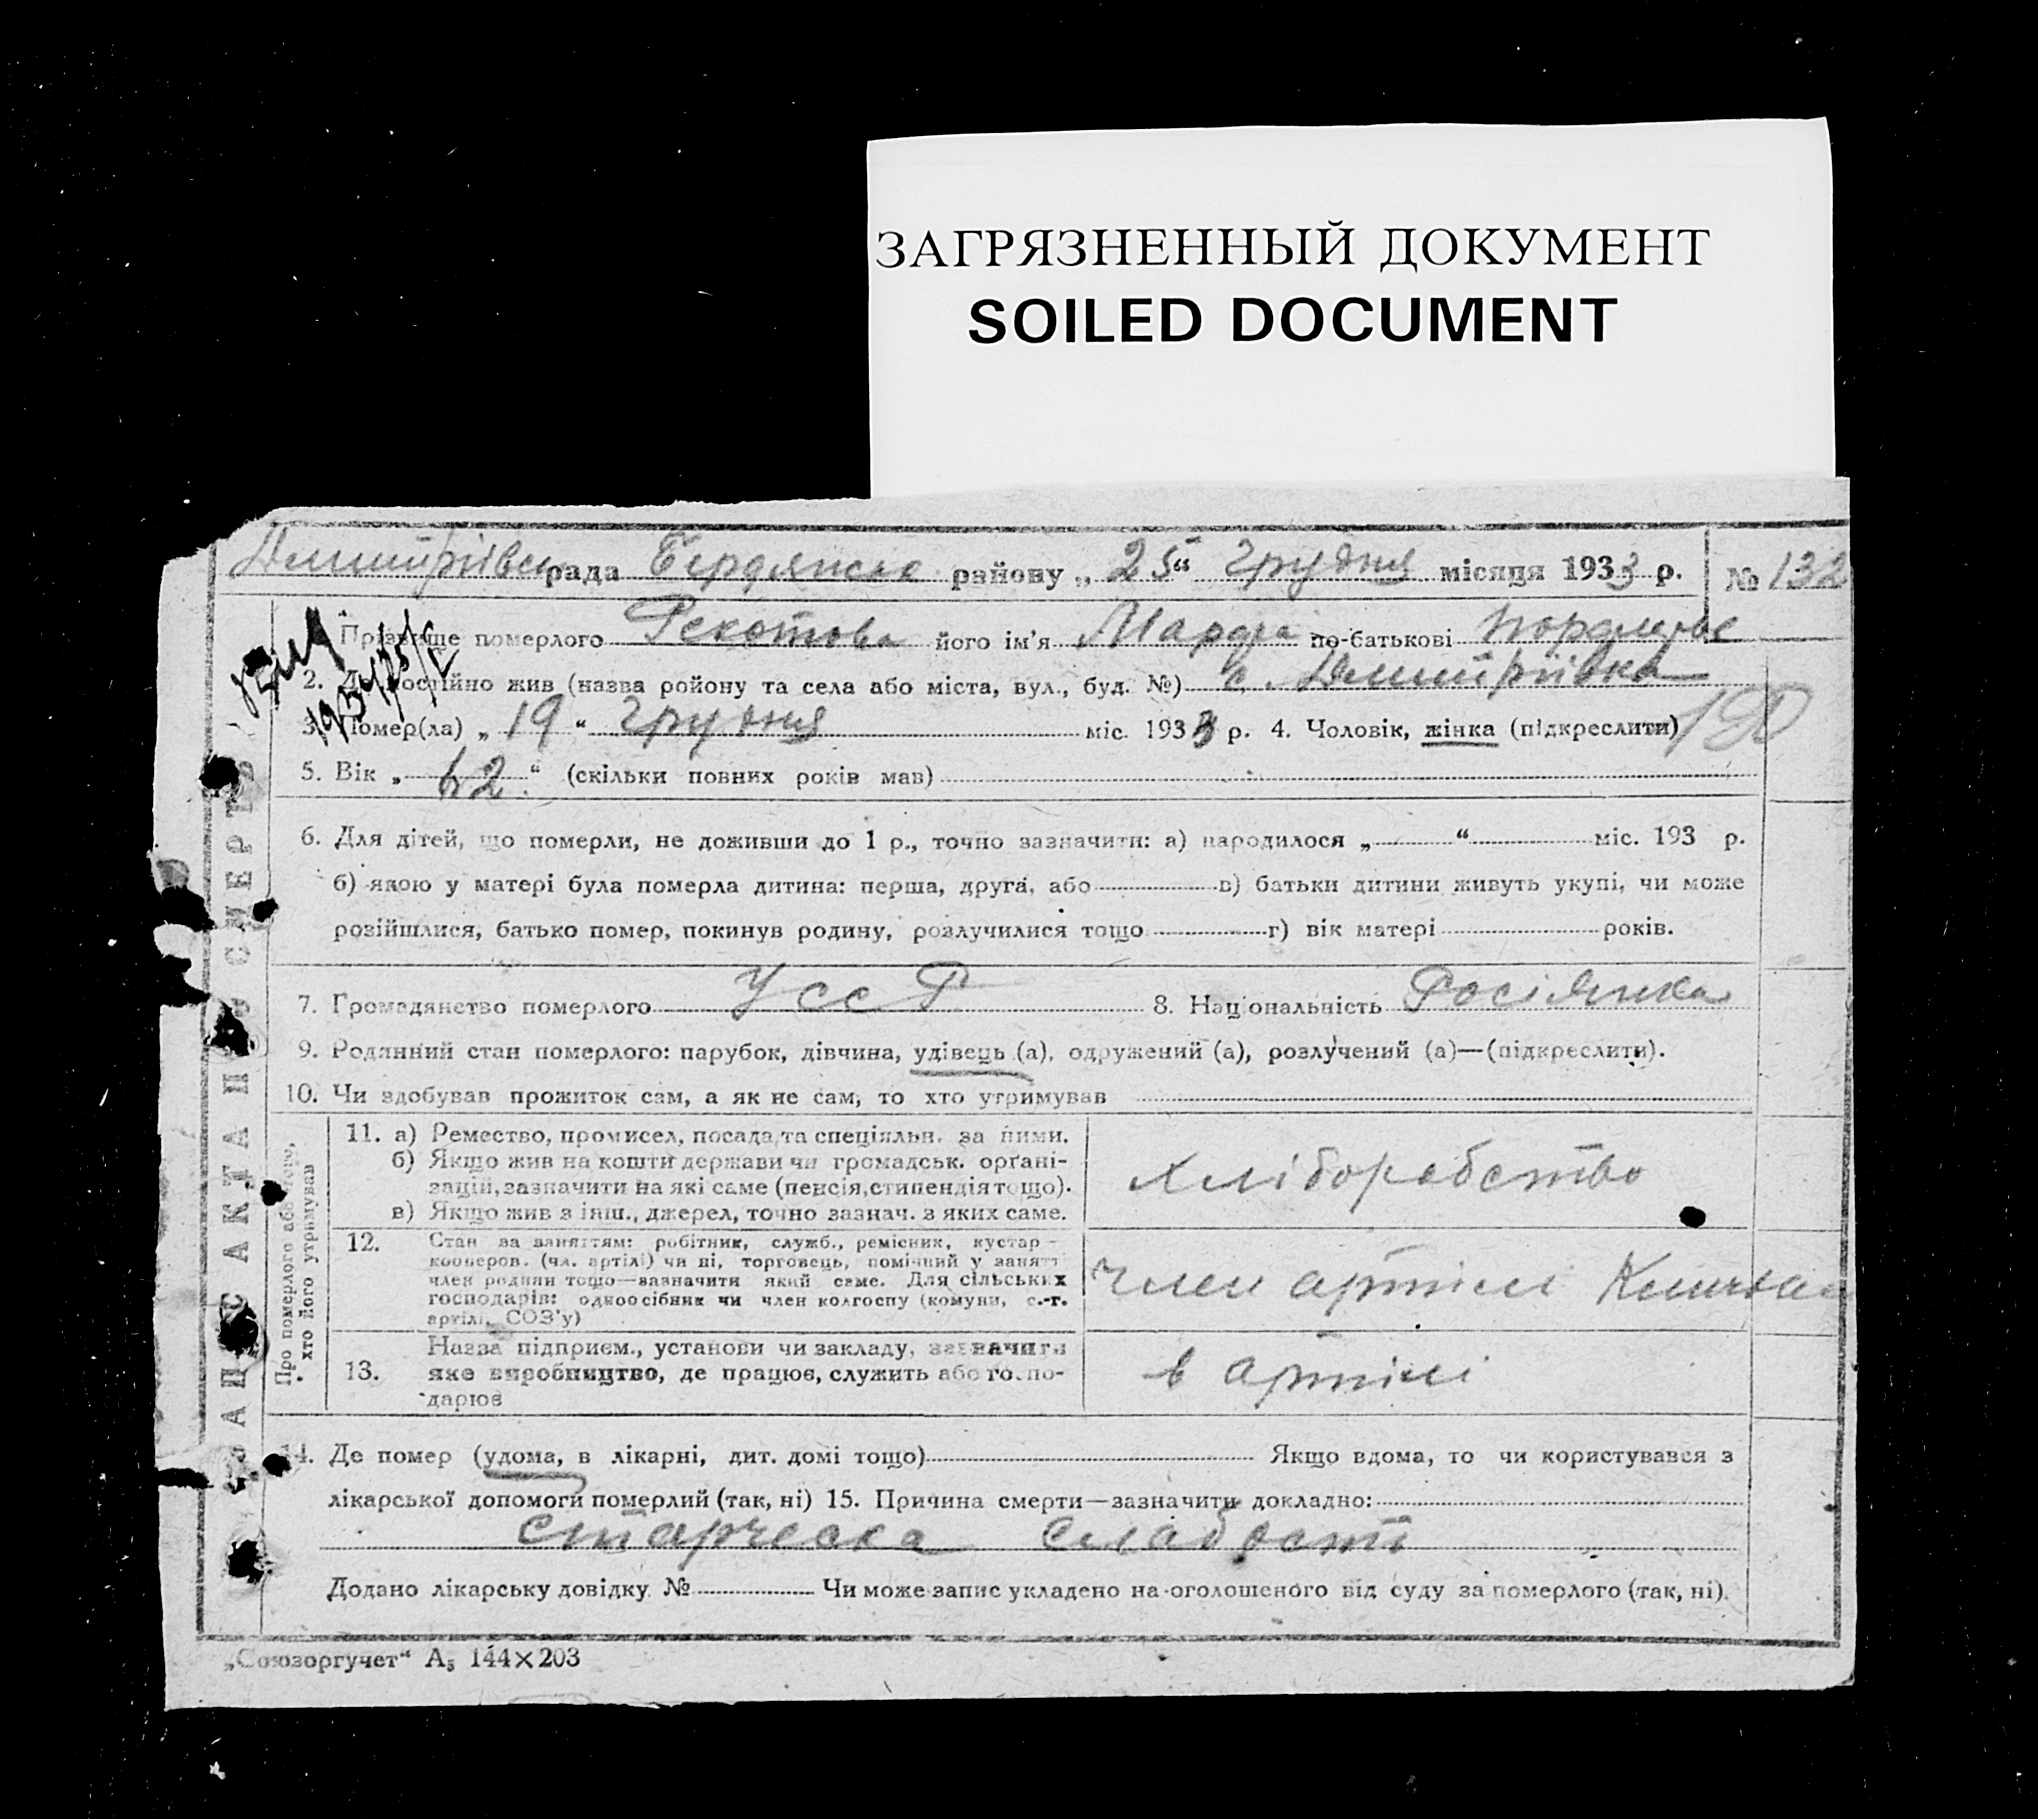 ЗАГРЯЗНЕННЫЙ ДОКУМЕНТ
SOILED DOCUMENT
Дмитрівск рада Бердянськ району „25“ грудня місяця 1933 р. № 132
Прізвище померлого Рекотова його ім’я по-батькові
2. Де постійно жив (назва ройону та села або міста, вул., буд. №) с. Дмитріївка
3. Помер(ла) „19“ грудня міс. 1933 р. 4. Чоловік, жінка (підкреслити)
5. Вік „62“ (скільки повних років мав)
6. Для дітей, що померли, не доживши до 1 р., точно зазначити: а) народилося „ “ міс. 193 р.
б) якою у матері була померла дитина: перша, друга, або в) батьки дитини живуть укупі, чи може
розійшлися, батько помер, покинув родину, розлучилися тощо г) вік матері років.
7. Громадянство померлого УССР 8. Національність Росіянка
9. Родинний стан померлого: парубок, дівчина, удівець (а), одружений (а), розлучений (а)—(підкреслити).
10. Чи здобував прожиток сам, а як не сам, то хто утримував
ЗАПИС АКТА ПРО СМЕРТЬ
Про померлого або того, хто його утримував
11. а) Ремество, промисел, посада, та спеціяльн. за ними.
б) Якщо жив на кошти держави чи громадськ. орґані-
зацій, зазначити на які саме (пенсія, стипендія тощо).
в) Якщо жив з інш., джерел, точно зазнач. з яких саме.
хліборобство
12. Стан за заняттям: робітник, служб., ремісник, кустар
кооперов. (чл. артілі) чи ні, торговець, помічний у занятті
член родини тощо—зазначити який саме. Для сільських
господарів: одноосібник чи член колгоспу (комуни, с.-г.
артілі, СОЗ’у)
член артілі
13. Назва підприєм., установи чи закладу, зазначити
яке виробництво, де працює, служить або госпо-
дарює
в артілі
14. Де помер (удома, в лікарні, дит. домі тощо) Якщо вдома, то чи користувався з
лікарської допомоги померлий (так, ні) 15. Причина смерти—зазначити докладно:
старческа слабость
Додано лікарську довідку № Чи може запис укладено на оголошеного від суду за померлого (так, ні).
„Союзоргучет“ А₅ 144×203